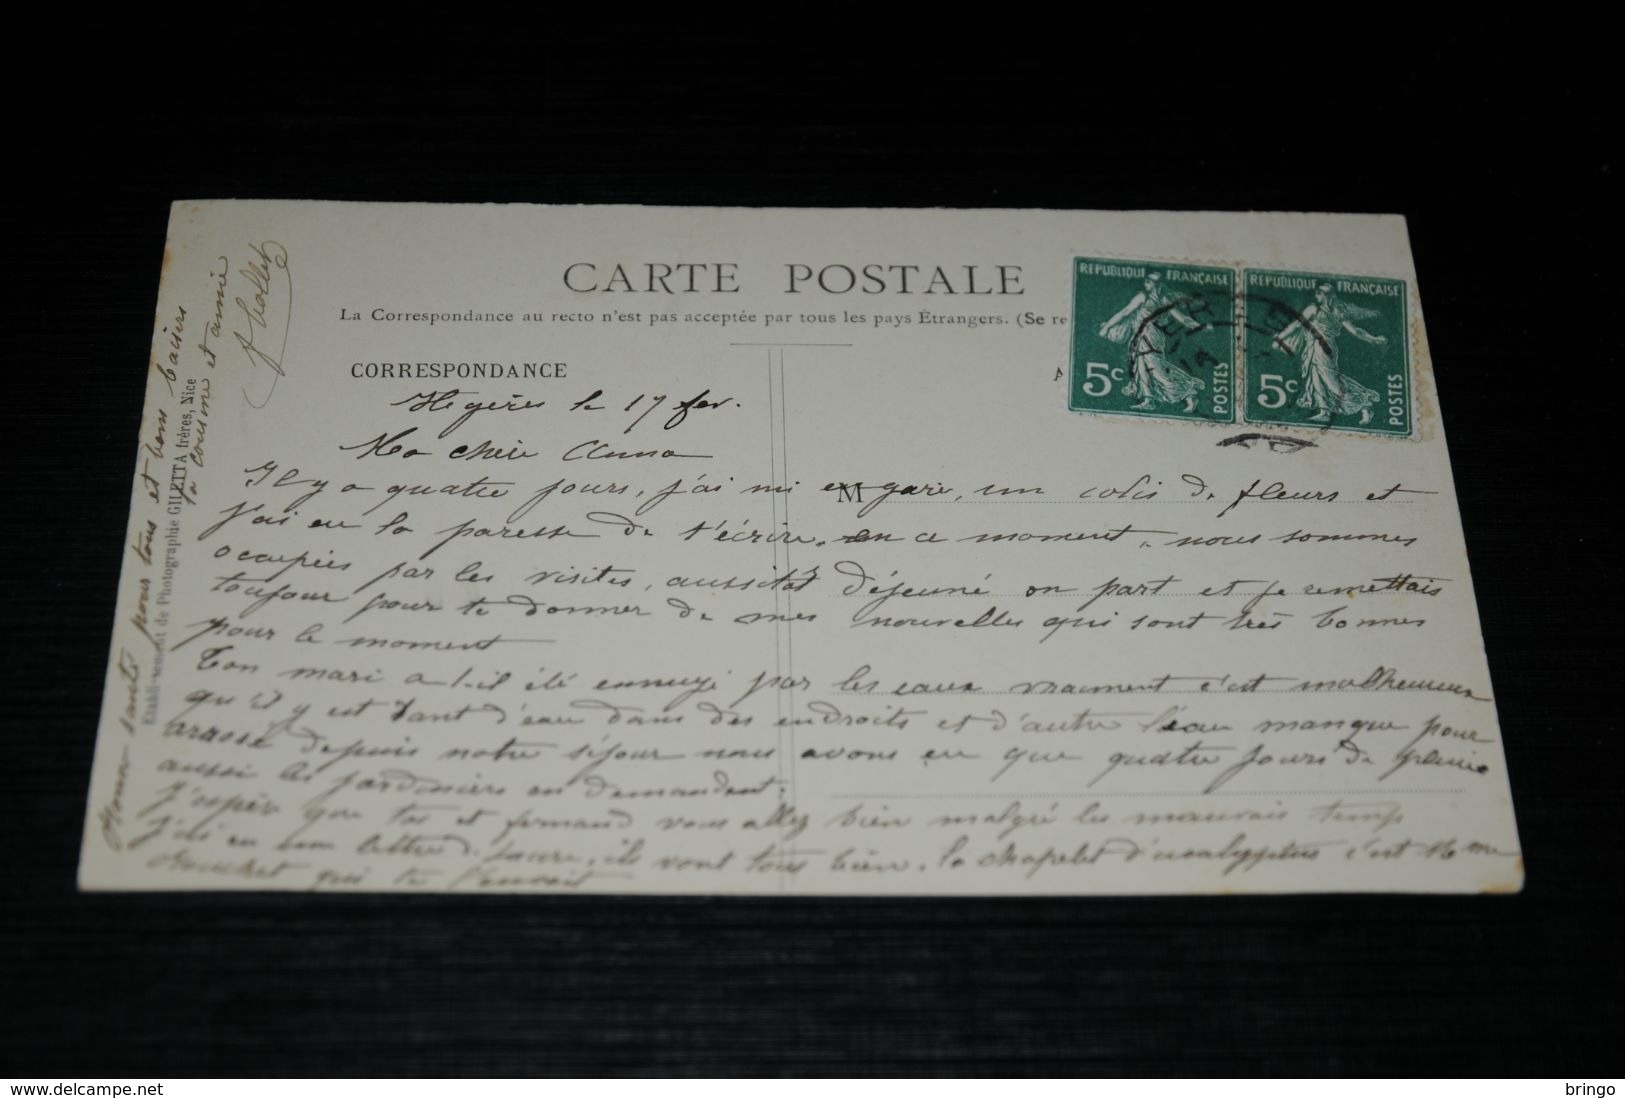 CARTE POSTALE
La Correspondance au recto n'est pas acceptée par tous les pays Étrangers. (Se re
CORRESPONDANCE
RÉPUBLIQUE FRANÇAISE
5c
POSTES
RÉPUBLIQUE FRANÇAISE
5c
POSTES
Hyères le 17 fev.
Ma chère Anna
Il y a quatre jours, j'ai mi en gare, un colis de fleurs et
M
j'ai eu la paresse de t'écrire, en ce moment, nous sommes
occupées par les visites, aussitôt déjeuné on part et je remettais
toujour pour te donner de mes nouvelles qui sont très bonnes
pour le moment
Ton mari a t-il été ennuyé par les eaux vraiment c'est malheureux
qu'il y est tant d'eau dans des endroits et d'autre l'eau manque pour
arrosé depuis notre séjour nous avons eu que quatre jours de pluie
aussi les jardiniers en demandent.
J'espère que toi et fernand vous allez bien malgré les mauvais temp
j'ai eu une lettre de, ils vont tous bien. le chapelet d'eucalyptus c'est Mme
qui te l'envoit
Bonne santé pour tous et bons baisers
ta cousine et amie
Etablissement de Photographie GILETTA frères, Nice
bringo